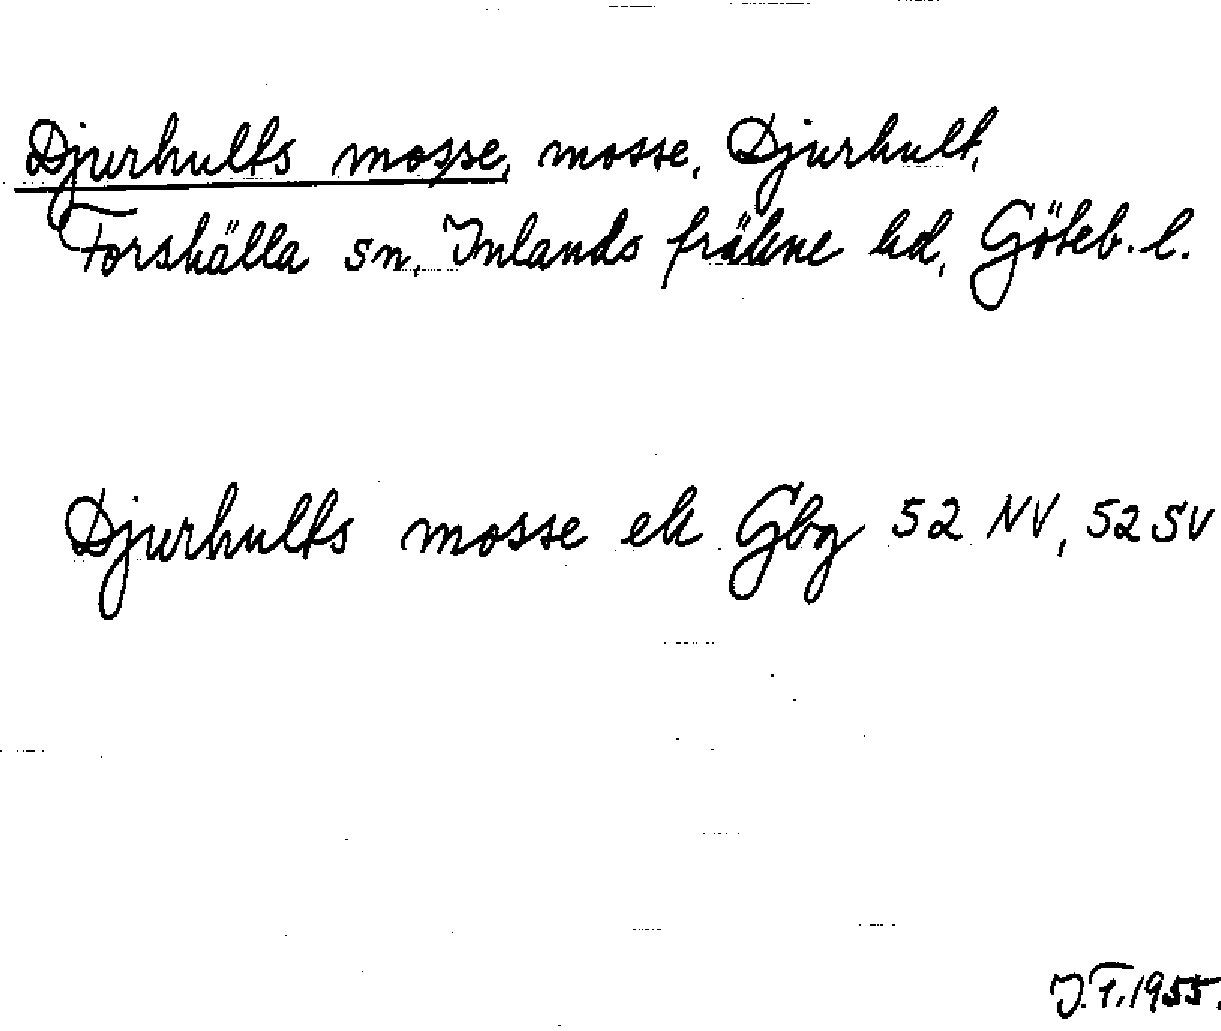 Djurhults mosse, mosse, Djurhult,
Forshälla sn, Inlands fräkne hd, Göteb. l.
Djurhults mosse ek Gbg 52 NV, 52 SV
J.F. 1955.